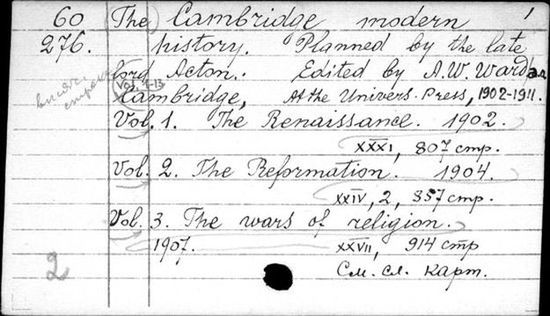 60 The Cambridge modern 1
276. history. Planned by the late
lord Acton. Edited by A.W. Ward
Vol. 1-13
Cambridge, At the Univers. Press, 1902-1911.
Vol. 1. The Renaissance. 1902.
XXXI, 807 стр.
Vol. 2. The Reformation. 1904.
XXIV, 2, 857 стр.
Vol. 3. The wars of religion.
1907. XXVII, 914 стр
2 См. сл. карт.